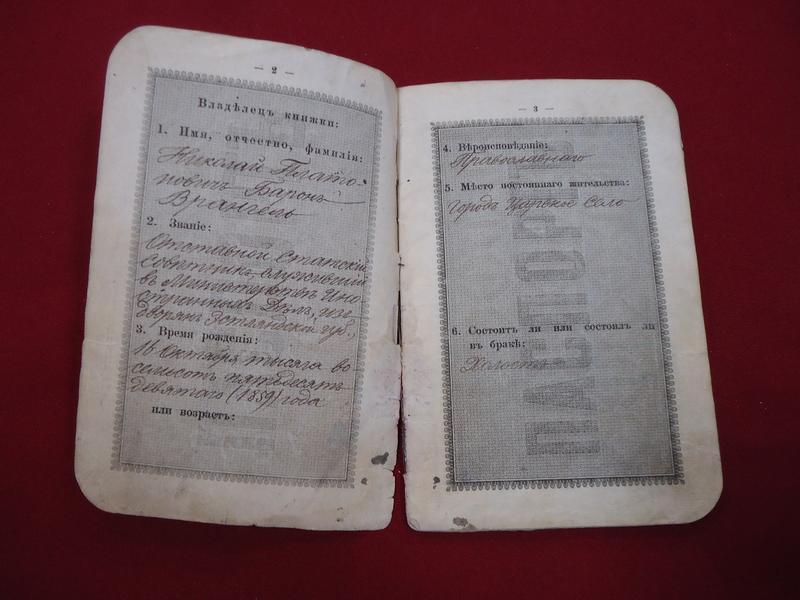 — 2 —
Владѣлецъ книжки:
1. Имя, отчество, фамилія:
Николай Плато-
новичъ Баронъ
Врангель
2. Званіе:
Отставной Статскій
Совѣтникъ, служившій
въ Министерствѣ Ино-
странныхъ Дѣлъ, изъ
Дворянъ Эстляндской губ.,
3. Время рожденія:
16 Октября тысяча во-
семьсотъ пятьдесятъ
девятаго (1859) года
или возрастъ:
— 3 —
4. Вѣроисповѣданіе:
Православнаго
5. Мѣсто постояннаго жительства:
Городъ Царское Село
6. Состоитъ ли или состоялъ ли
въ бракѣ:
Холостъ
ПАСПОРТ